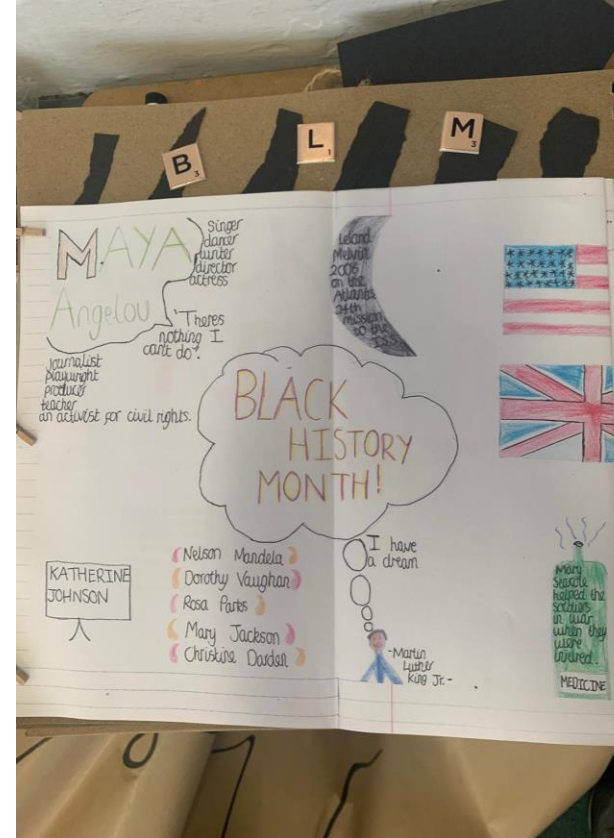 B3
L1
M3
MAYA
Angelou
Singer
dancer
writer
director
actress
'Theres
nothing I
can't do'.
journalist
playwright
producer
teacher
an activist for civil rights.
Leland
Melvin
on the
Atlantis
24th
mission
to the
ISS
BLACK
HISTORY
MONTH!
KATHERINE
JOHNSON
Nelson Mandela
Dorothy Vaughan
Rosa Parks
Mary Jackson
Christine Darden
I have
a dream
-Martin
Luther
King Jr.-
Mary
helped the
soldiers
in war
when they
were
injured.
MEDICINE